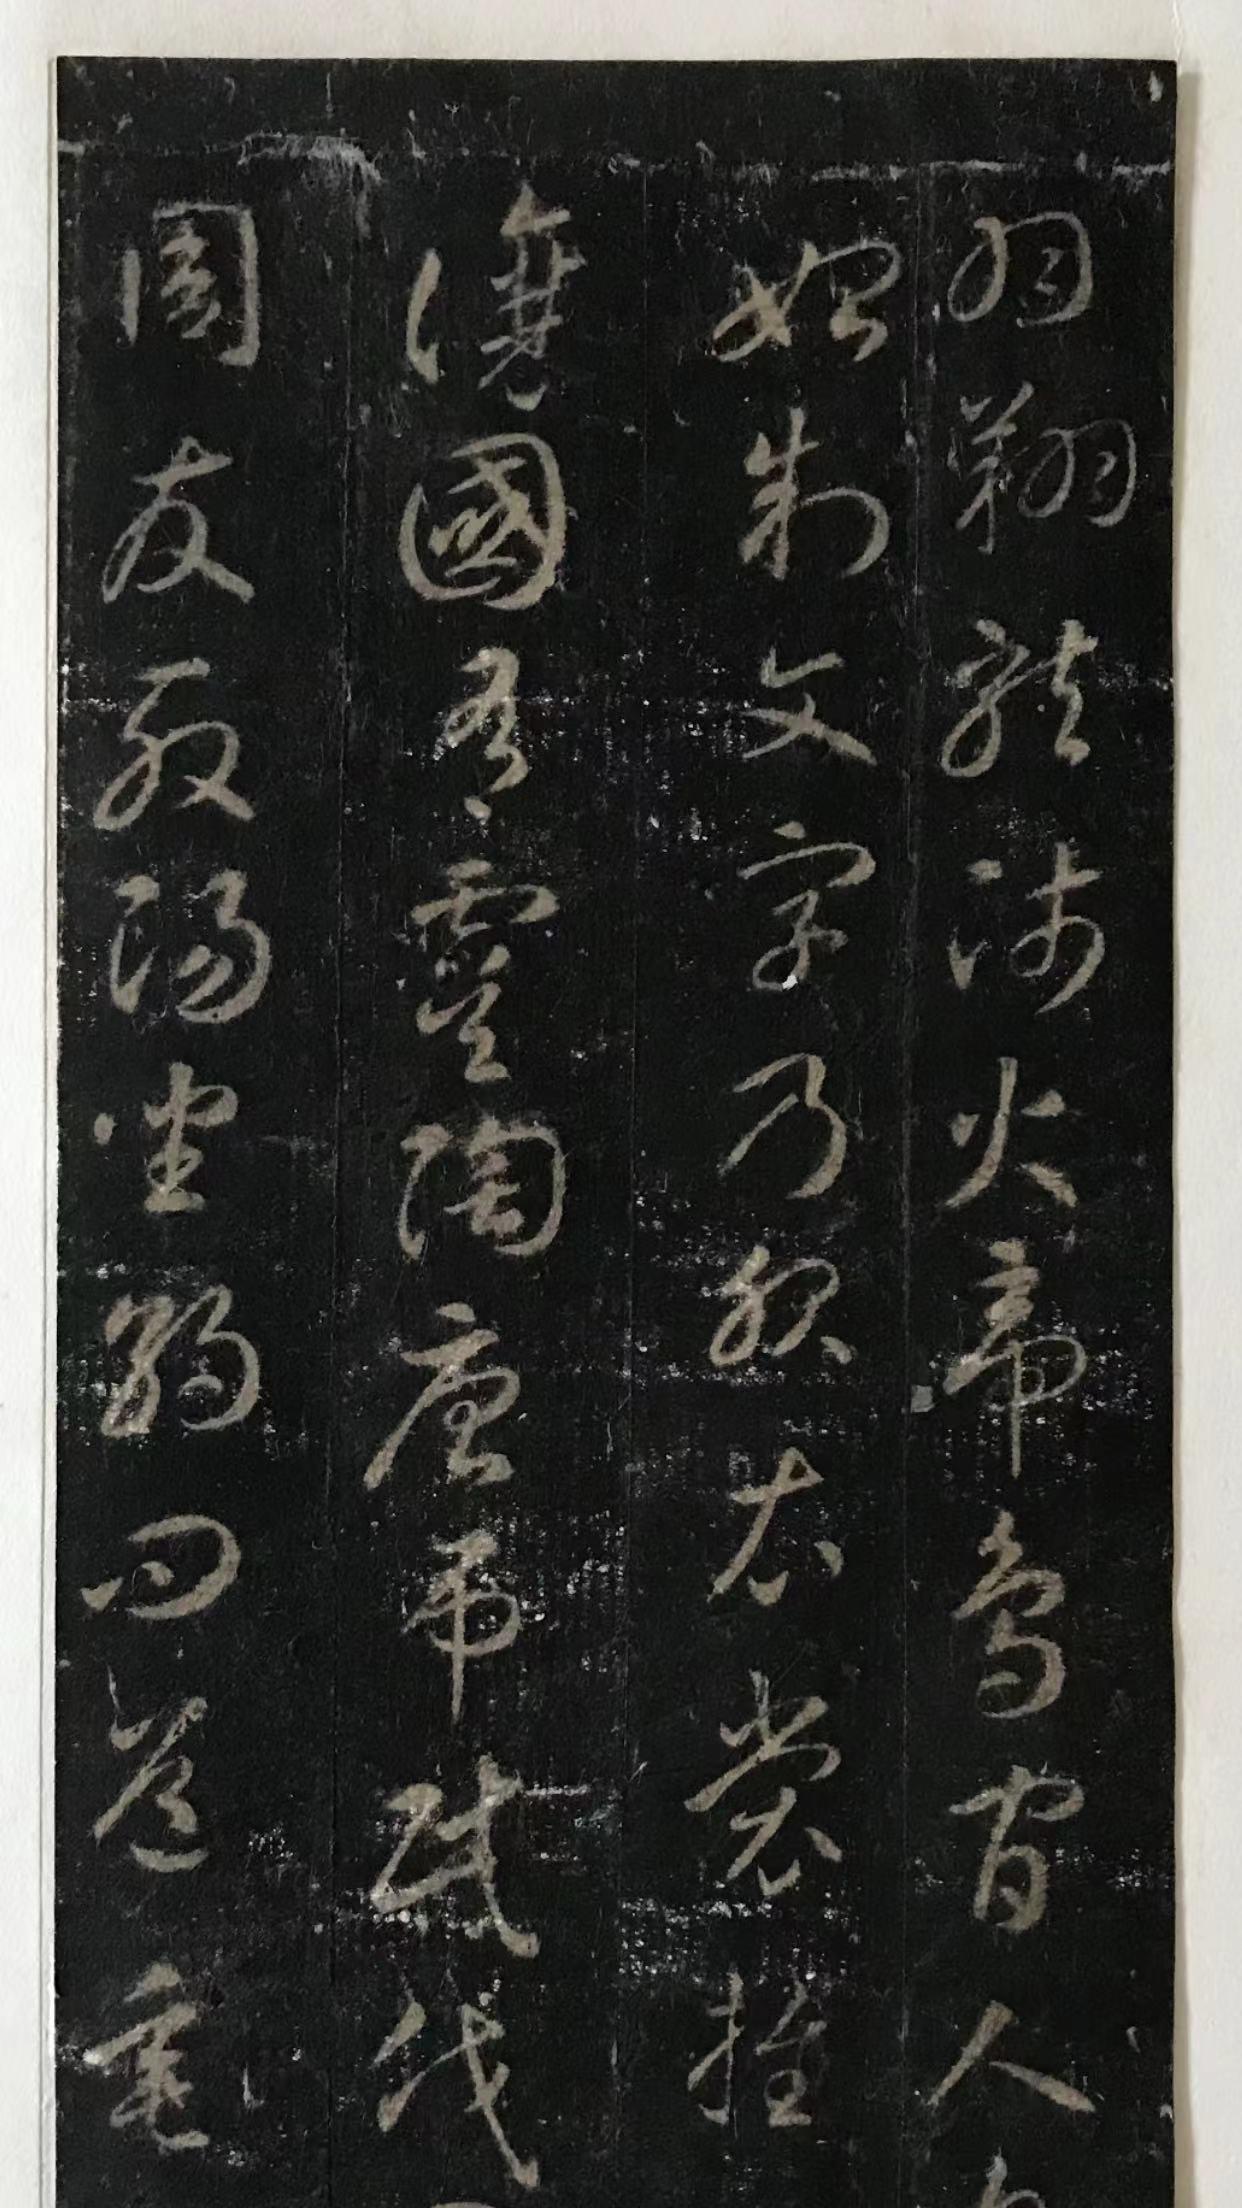 羽翔龍師火帝鳥官人
始制文字乃服衣裳推
讓國有虞陶唐弔民伐
周發殷湯坐朝問道垂